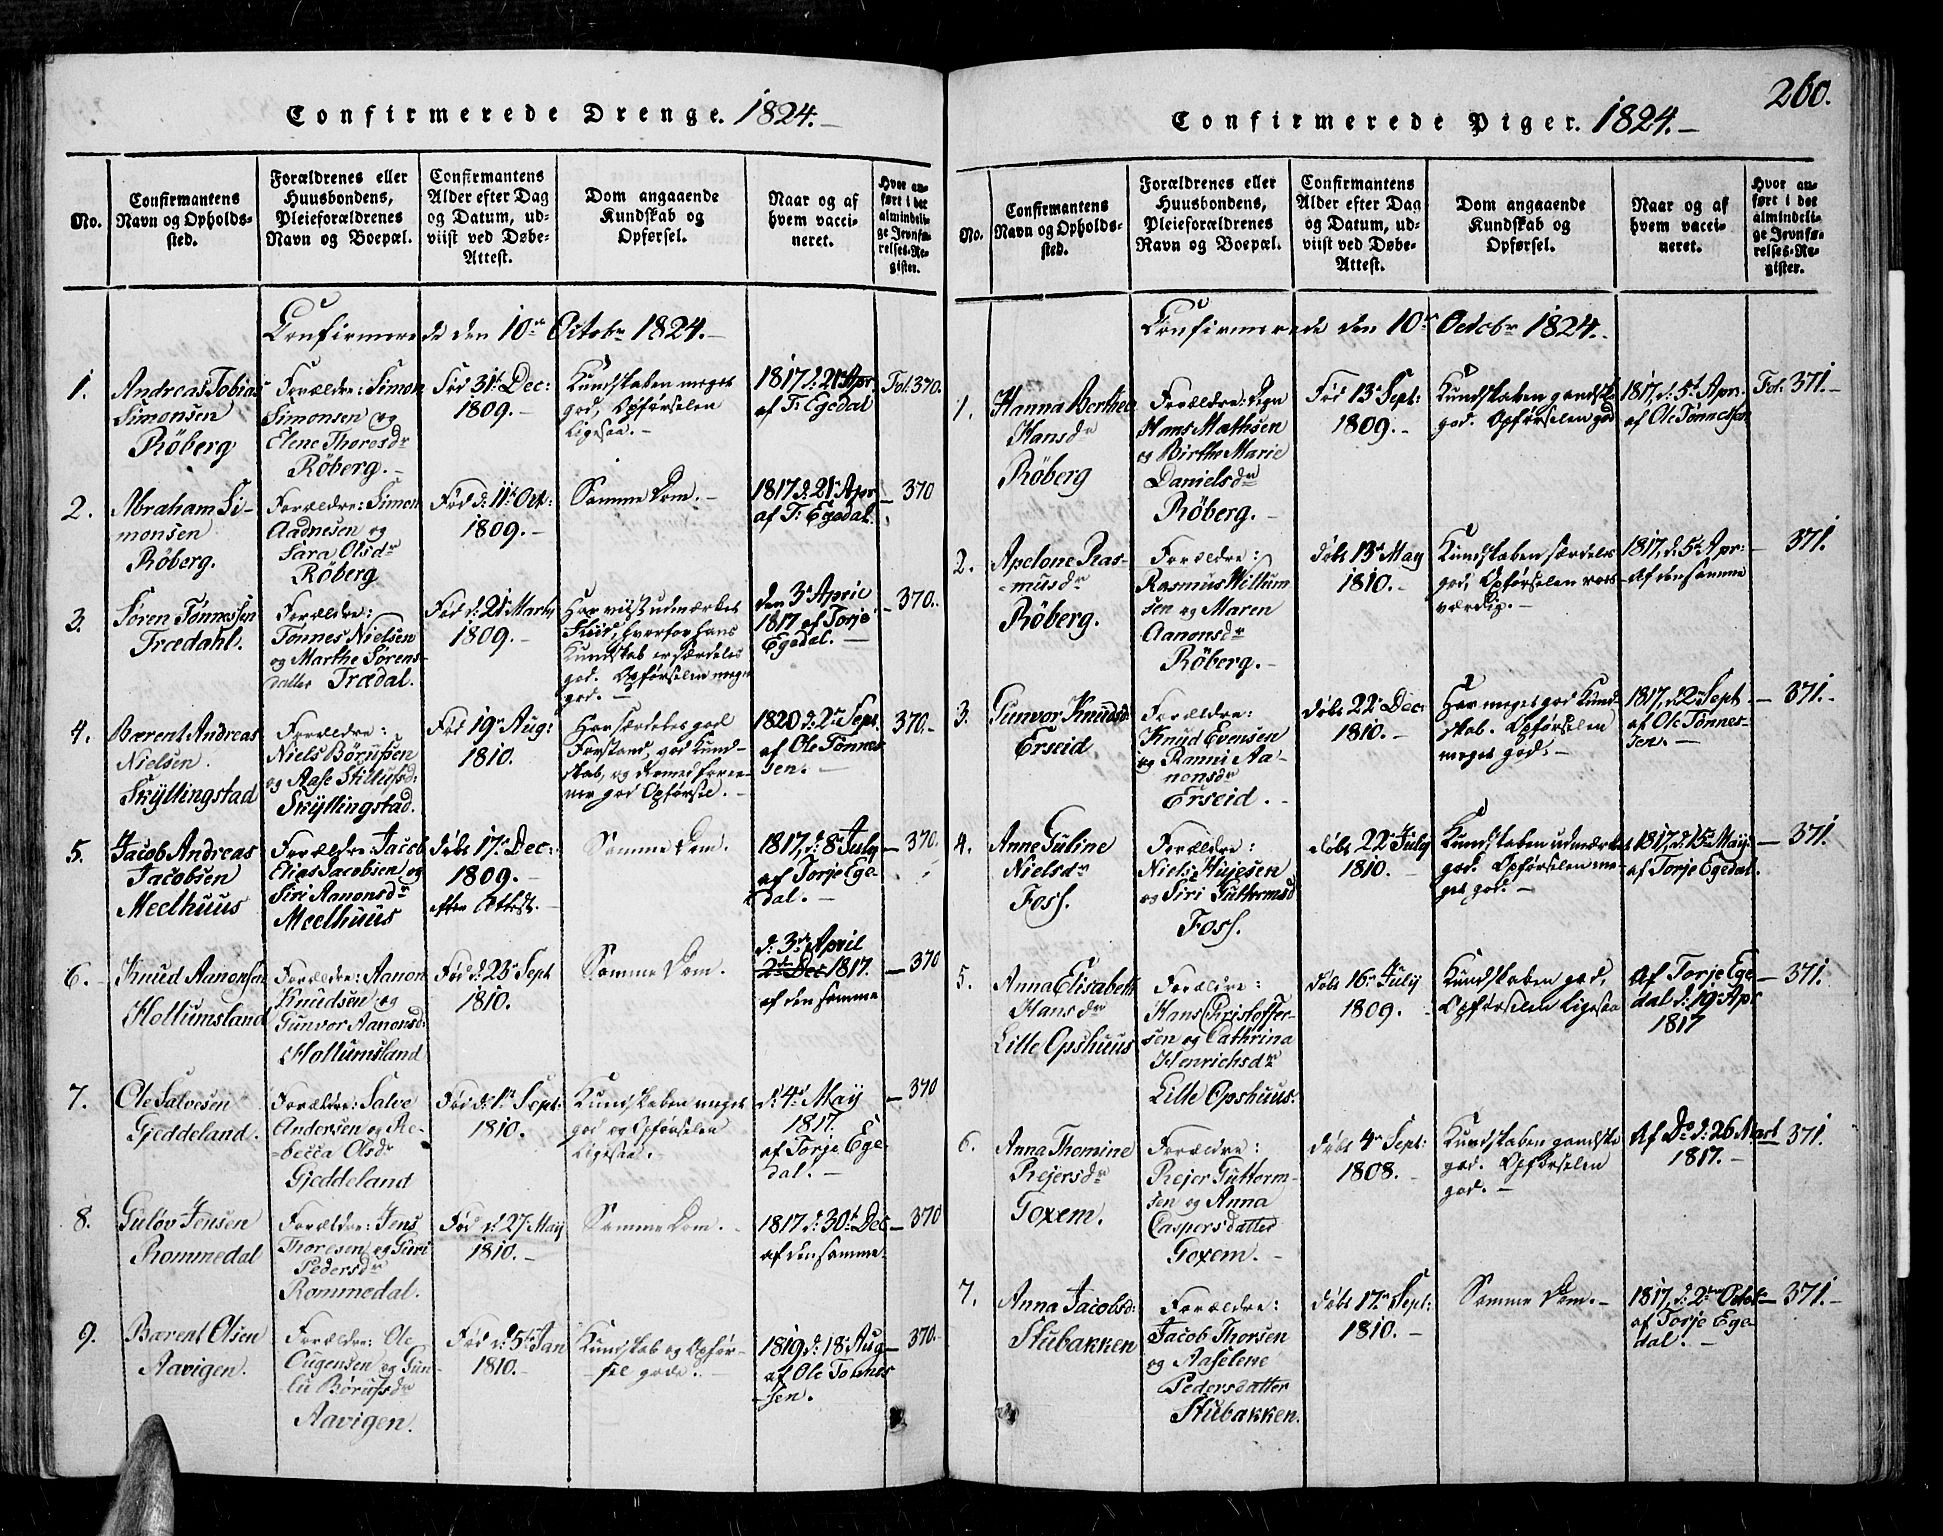 Confirmerede Drenge. 1824.
No.
Confirmantens Navn og Opholds-sted.
Forældrenes eller Huusbondens, Pleieforældrenes Navn og Boepæl.
Confirmantens Alder efter Dag og Datum, ud-viist ved Døbe-Attest.
Dom angaaende Kundskab og Opførsel.
Naar og af hvem vacci-neret.
Hvor an-ført i det almindeli-ge Jevnfø-relses-Re-gister.
Confirmerede den 10de Octobr 1824.
1.
Andreas Tobias
Simonsen
Röberg
Forældre: Simon
Simonsen og
Elene Thorosdr
Röberg.
Fød 31te Dec:
1809.
Kundskaben meget
god, Opførselen
ligesaa.
1817 d: 21de Apr
af T: Egedal
Fol. 370.
2.
Abraham Si-
monsen
Röberg.
Forældre: Simon
Aadnesen og
Sara Olsdr
Röberg
Fød d: 11te Oct:
1809.
Samme Dom.
1817 d: 21 Apr
af T: Egedal.
370
3.
Søren Tønnessen
Trædahl.
Forældre:
Tønnes Nielsen
og Marthe Sørens-
datter Trædal.
Fød d: 21 Marts
1809.
Har viist udmærket
Fliid, hvorfor hans
Kundskab er særdeles
god. Opførselen meget
god.
den 3de April
1817 af Torje
Egedal.
370.
4.
Bærent Andreas
Nielsen
Skyllingstad
Forældre:
Niels Börufsen
og Aase Stillufsd:
Skyllingstad.
Fød 19de Aug:
1810.
Har særdeles god
Forstand, god Kund-
skab, og dermed foree-
ner god Opførsel.
1820 d: 2de Sept.
af Ole Tønnes-
sen.
370.
5.
Jacob Andreas
Jacobsen
Meelhuus
Forældre: Jacob
Elias Jacobsen og
Siri Aanonsdr
Meelhuus
døbt 17de Dec:
1809.
efter Attest.
Samme Dom.
1817, d: 8de July
af Torje Ege-
dal.
370.
6.
Knud Aanonsen
Hollumsland
Forældre: Aanon
Knudsen og
Gunvor Aanonsd:
Hollumsland
Fød d: 23de Sept
1810.
Samme Dom.
d: 3de April
2de Dec 1817.
af den samme
370
7.
Ole Salvesen
Gjeddeland.
Forældre: Salve
Andersen og Re-
becca Olsdr
Gjeddeland
Fød d: 1de Sept:
1810.
Kundskaben meget
god og Opførselen
ligesaa.
d: 4de May
1817.
af Torje Ege
dal.
370
8.
Gulov Jensen
Rommedal
Forældre: Jens
Thoresen og Guri
Pedersdr
Rommedal.
Fød d: 27de May
1810.
Samme Dom.
1817 d: 30te Dec
af den samme.
370
9.
Barent Olsen
Aavigen.
Forældre: Ole
Eugensen og Gun-
lu Børufsdr
Aavigen.
Fød d: 5te Jan
1810.
Kundskab og Opfør-
sel gode.
1819 d: 18de Aug
af Ole Tønnes
sen.
370.
260.
Confirmerede Piger. 1824.
No.
Confirmantens Navn og Opholds-sted.
Forældrenes eller Huusbondens, Pleieforældrenes Navn og Boepæl.
Confirmantens Alder efter Dag og Datum, ud-viist ved Døbe-Attest.
Dom angaaende Kundskab og Opførsel.
Naar og af hvem vacci-neret.
Hvor an-ført i det almindeli-ge Jevnfø-relses-Re-gister.
Confirmerede den 10de Octobr 1824.
1.
Hanna Berthea
Hansdr
Röberg
Forældre:
Hans Mathsen
og Birthe Marie
Danielsdr
Röberg.
Fød 13de Sept:
1809.
Kundskaben gandske
god. Opførselen god
1817, d: 5te Apr.
af Ole Tønnessen
Fol. 371.
2.
Apelone Ras-
musdr
Röberg.
Forældre:
Rasmus Villum
sen og Maren
Aanonsdr
Röberg.
døbt 13de May
1810.
Kundskaben særdeles
god, Opførselen roes-
værdig.
1817, d: 5te Apr:
af den samme
371.
3.
Gunvor Knudsd:
Erseid
Forældre:
Knud Evensen
og Ranni Aa-
nonsdr
Erseid.
døbt 22de Dec:
1810.
Har meget god Kund-
skab. Opførselen
meget god.
1817, 22de Sept
af Ole Tønnes-
sen.
371.
4.
Anne Guline
Nielsdr
Foss.
Forældre:
Niels
og Siri Guttormsd
Foss.
døbt 22de July
1810.
Kundskaben udmærket
god. Opførselen me-
get god.
1817, d: 15de May
af Torje Egedal.
371.
5.
Anna Elisabeth
Hansdr
Lille Opshuus
Forældre:
Hans Christoffer-
sen og Cathrina
Henrichsdr
Lille Opshuus.
døbt 16de July
1809.
Kundskaben god,
Opførselen ligesaa
Af Torje Ege-
dal d: 19de Apr
1817
371.
6.
Anna Thomine
Rejersdr
Goxem.
Forældre:
Rejer Guttorm-
sen og Anna
Caspersdatter
Goxem.
døbt 4de Sept:
1808.
Kundskaben gandske
god. Opførselen
god.
Af Do d: 26 Mart
1817.
371.
7.
Anna Jacobsd:
Stubakken
Forældre:
Jacob Thorsen
og Aaselene
Pedersdatter
Stubakken.
døbt 17de Sept:
1810.
Samme Dom.
1817, d: 2den Octob
af Torje Ege-
dal.
371.